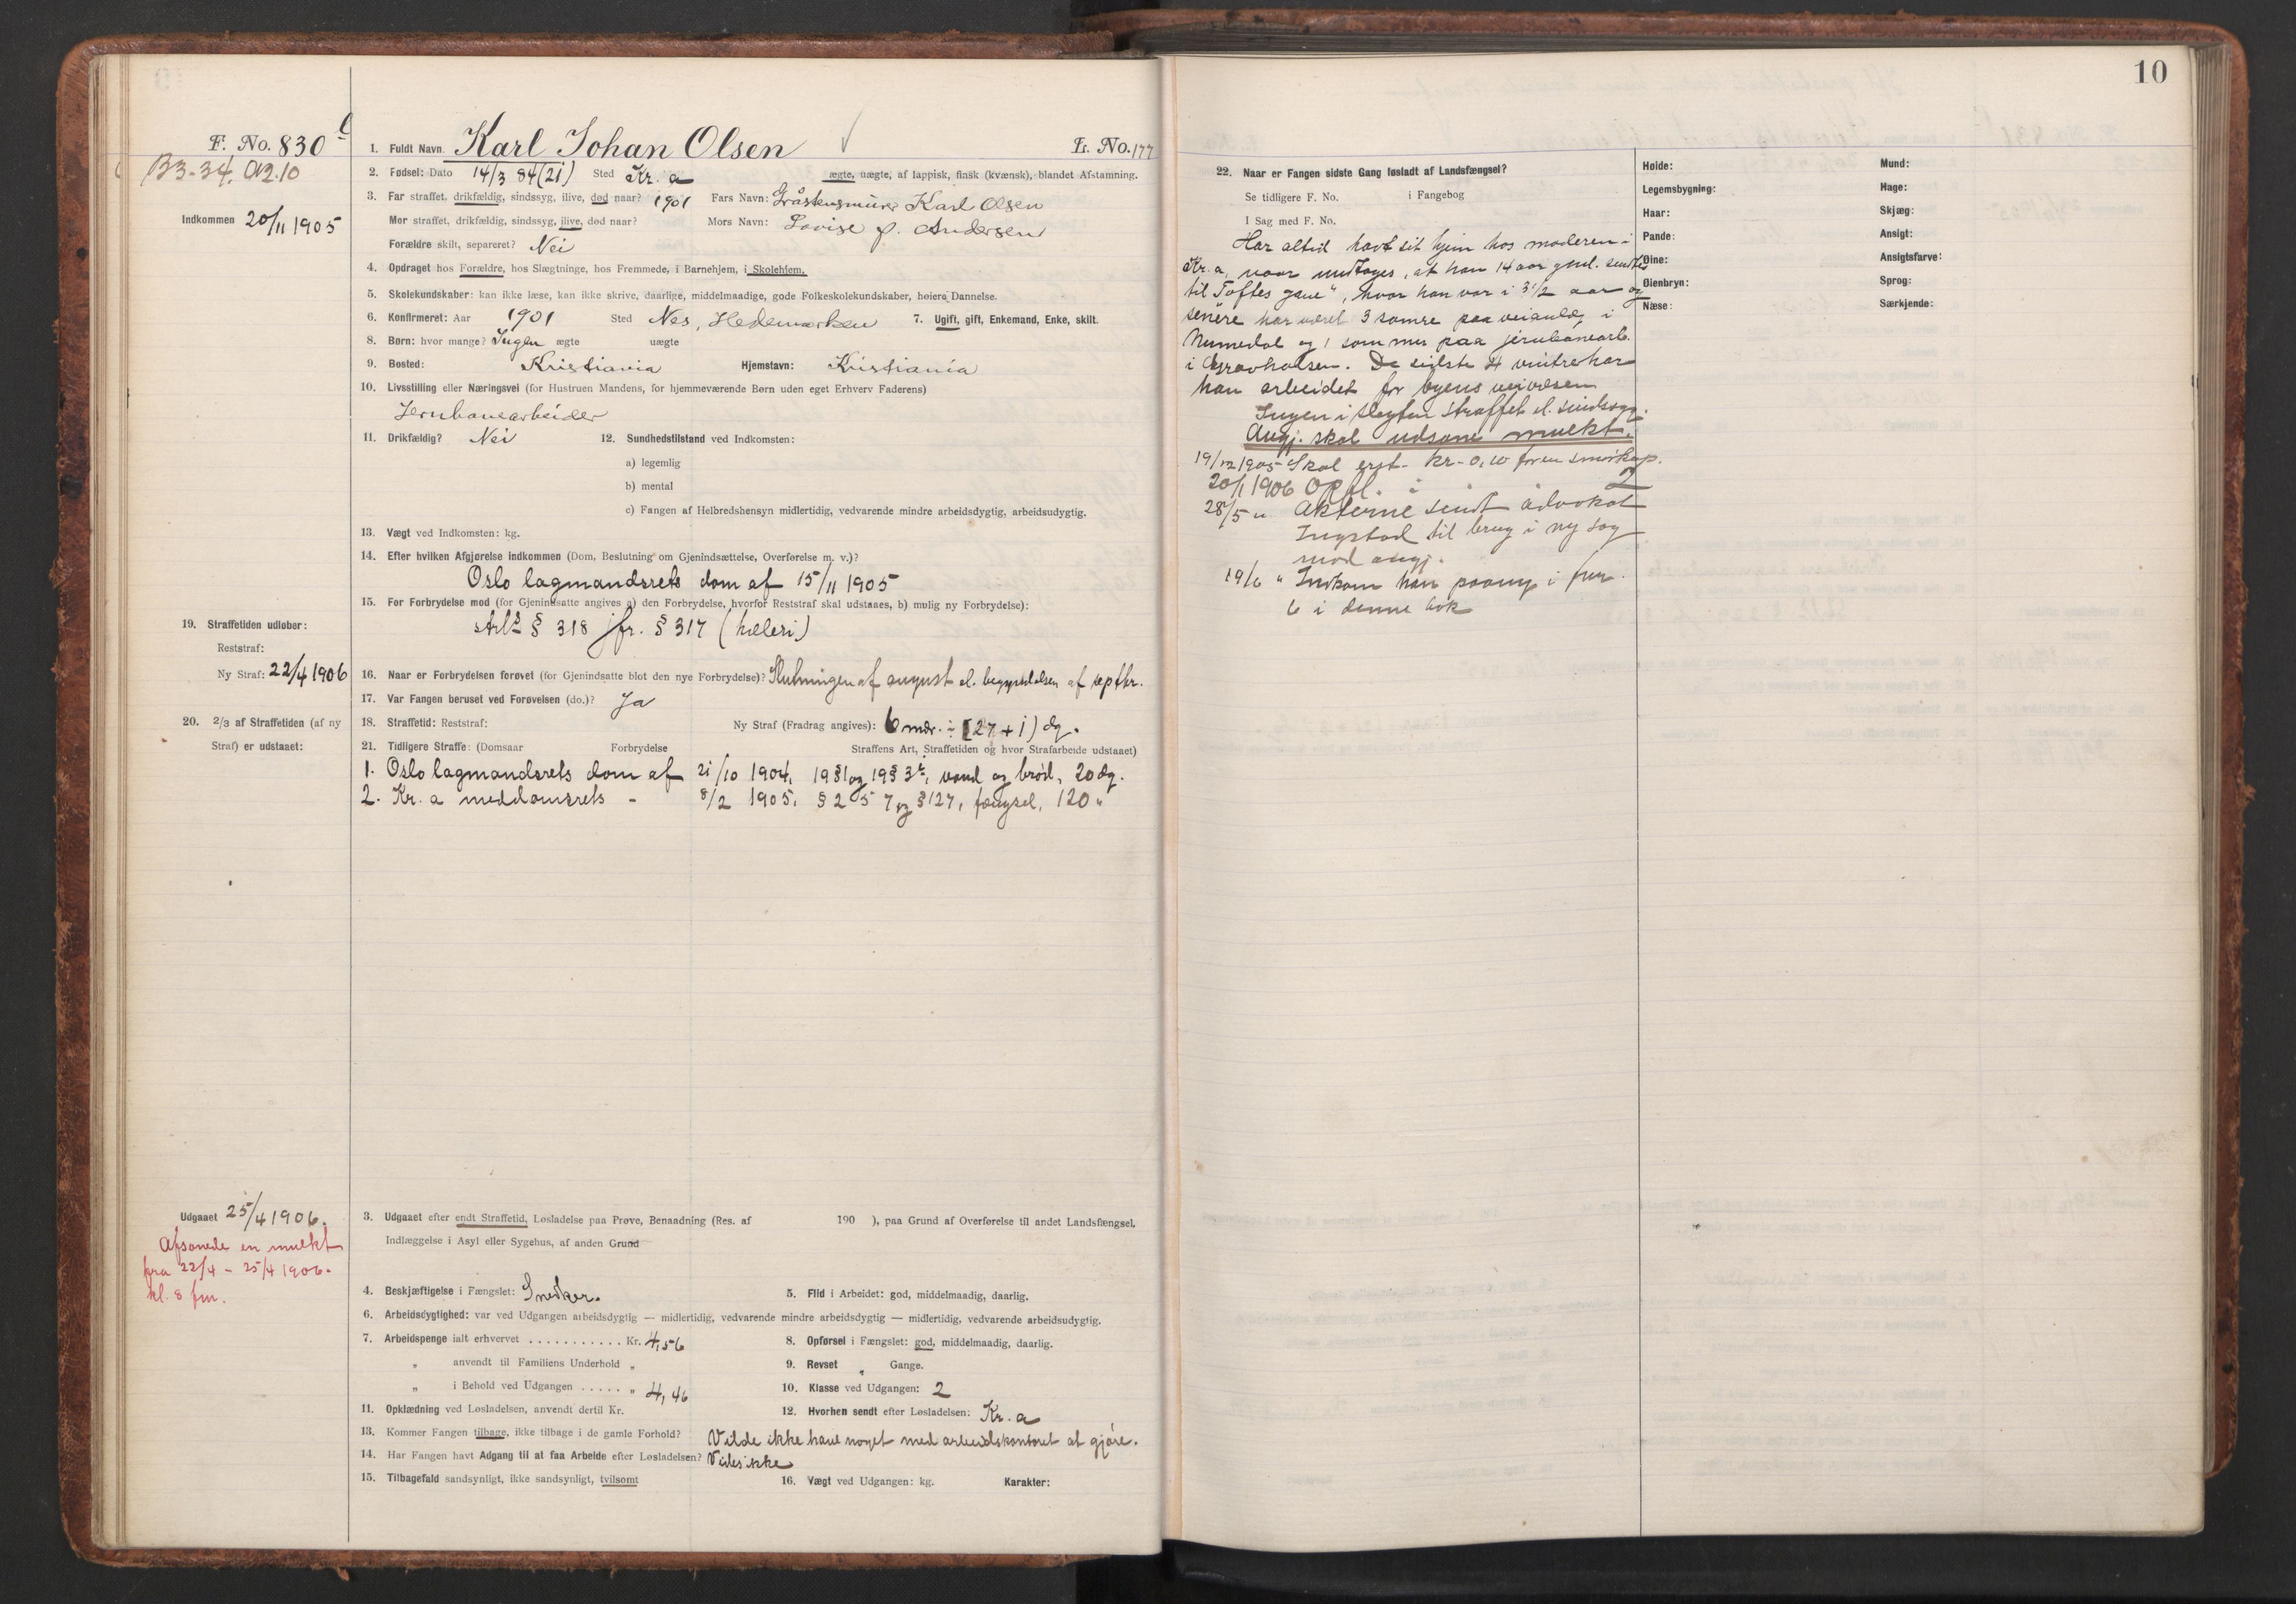 10
F. No. 830 b
B3-34. A2.10
Indkommen 20/11 1905
1. Fuldt Navn. Karl Johan Olsen L. No. 177
2. Fødsel: Dato 14/3 84 (21) Sted Kr.a ægte, uægte, af lappisk, finsk (kvænsk), blandet Afstamning.
3. Far straffet, drikfældig, sindssyg, ilive, død naar? 1901 Fars Navn: Gråstensmurer Karl Olsen
Mor straffet, drikfældig, sindssyg, ilive, død naar? Mors Navn: Lovise f. Andersen
Forældre skilt, separeret? Nei
4. Opdraget hos Forældre, hos Slægtninge, hos Fremmede, i Barnehjem, i Skolehjem.
5. Skolekundskaber: kan ikke læse, kan ikke skrive, daarlige, middelmaadige, gode Folkeskolekundskaber, høiere Dannelse.
6. Konfirmeret: Aar 1901 Sted Nes, Hedemarken 7. Ugift, gift, Enkemand, Enke, skilt.
8. Børn: hvor mange? Ingen ægte uægte
9. Bosted: Kristiania Hjemstavn: Kristiania
10. Livsstilling eller Næringsvei (for Hustruen Mandens, for hjemmeværende Børn uden eget Erhverv Faderens)
Jernbanearbeider
11. Drikfældig? Nei 12. Sundhedstilstand ved Indkomsten:
a) legemlig
b) mental
c) Fangen af Helbredshensyn midlertidig, vedvarende mindre arbeidsdygtig, arbeidsudygtig.
13. Vægt ved Indkomsten: kg.
14. Efter hvilken Afgjørelse indkommen (Dom, Beslutning om Gjenindsættelse, Overførelse m. v.)?
Oslo lagmandsrets dom af 15/11 1905
15. For Forbrydelse mod (for Gjenindsatte angives a) den Forbrydelse, hvorfor Reststraf skal udstaaes, b) mulig ny Forbrydelse):
strl. § 318 jfr. § 317 (hæleri)
19. Straffetiden udløber:
Reststraf:
Ny Straf: 22/4 1906
16. Naar er Forbrydelsen forøvet (for Gjenindsatte blot den nye Forbrydelse)? Slutningen af august el. begyndelsen af septbr.
17. Var Fangen beruset ved Forøvelsen (do.)? Ja
20. 2/3 af Straffetiden (af ny
Straf) er udstaaet:
18. Straffetid: Reststraf: Ny Straf (Fradrag angives): 6 mdr. ÷ (27 + 1) dg.
21. Tidligere Straffe: (Domsaar Forbrydelse Straffens Art, Straffetiden og hvor Strafarbeide udstaaet)
1. Oslo lagmandsrets dom af 21/10 1904, 19 § 1 og 19 § 3 b, vand og brød, 20 dg.
2. Kr.a meddomsrets - 8/2 1905, § 257 og § 127, fængsel, 120 "
Udgaaet 25/4 1906.
Afsonede en mulkt
fra 22/4 - 25/4 1906.
kl. 8 fm.
3. Udgaaet efter endt Straffetid, Løsladelse paa Prøve, Benaadning (Res. af 190 ), paa Grund af Overførelse til andet Landsfængsel,
Indlæggelse i Asyl eller Sygehus, af anden Grund
4. Beskjæftigelse i Fængslet: Snedker. 5. Flid i Arbeidet: god, middelmaadig, daarlig.
6. Arbeidsdygtighed: var ved Udgangen arbeidsdygtig — midlertidig, vedvarende mindre arbeidsdygtig — midlertidig, vedvarende arbeidsudygtig.
7. Arbeidspenge ialt erhvervet ........... Kr. 4,56 8. Opførsel i Fængslet: god, middelmaadig, daarlig.
" anvendt til Familiens Underhold " 9. Revset " Gange.
" i Behold ved Udgangen ..... " 4,46 10. Klasse ved Udgangen: 2
11. Opklædning ved Løsladelsen, anvendt dertil Kr. 12. Hvorhen sendt efter Løsladelsen: Kr.a
13. Kommer Fangen tilbage, ikke tilbage i de gamle Forhold? Vilde ikke have noget med arbeidskontoret at gjøre.
14. Har Fangen havt Adgang til at faa Arbeide efter Løsladelsen? Vides ikke
15. Tilbagefald sandsynligt, ikke sandsynligt, tvilsomt 16. Vægt ved Udgangen: kg. Karakter:
22. Naar er Fangen sidste Gang løsladt af Landsfængsel?
Se tidligere F. No. i Fangebog
I Sag med F. No.
Har altid havt sit hjem hos moderen i
Kr.a, naar undtages, at han 14 aar gml. sendtes
til "Toftes gave", hvor han var i 3 1/2 aar og
senere har været 3 somre paa veianlæg i
Numedal og 1 sommer paa jernbanearb.
i Gravhalsen. De sidste 4 vintre har
han arbeidet for byens veivæsen
Ingen i slegten straffet el. sindssyg.
Angj. skal udsone mulkt.
19/12 1905 Skal erst. kr. 0,10 for en
20/1 1906 Opfl. i 2
28/5 " Akterne sendt advokat
Ingstad til brug i ny sag
mod angj.
19/6 " Indkom han paany i
6 i denne bok
Høide: Mund:
Legemsbygning: Hage:
Haar: Skjæg:
Pande: Ansigt:
Øine: Ansigtsfarve:
Øienbryn: Sprog:
Næse: Særkjende: